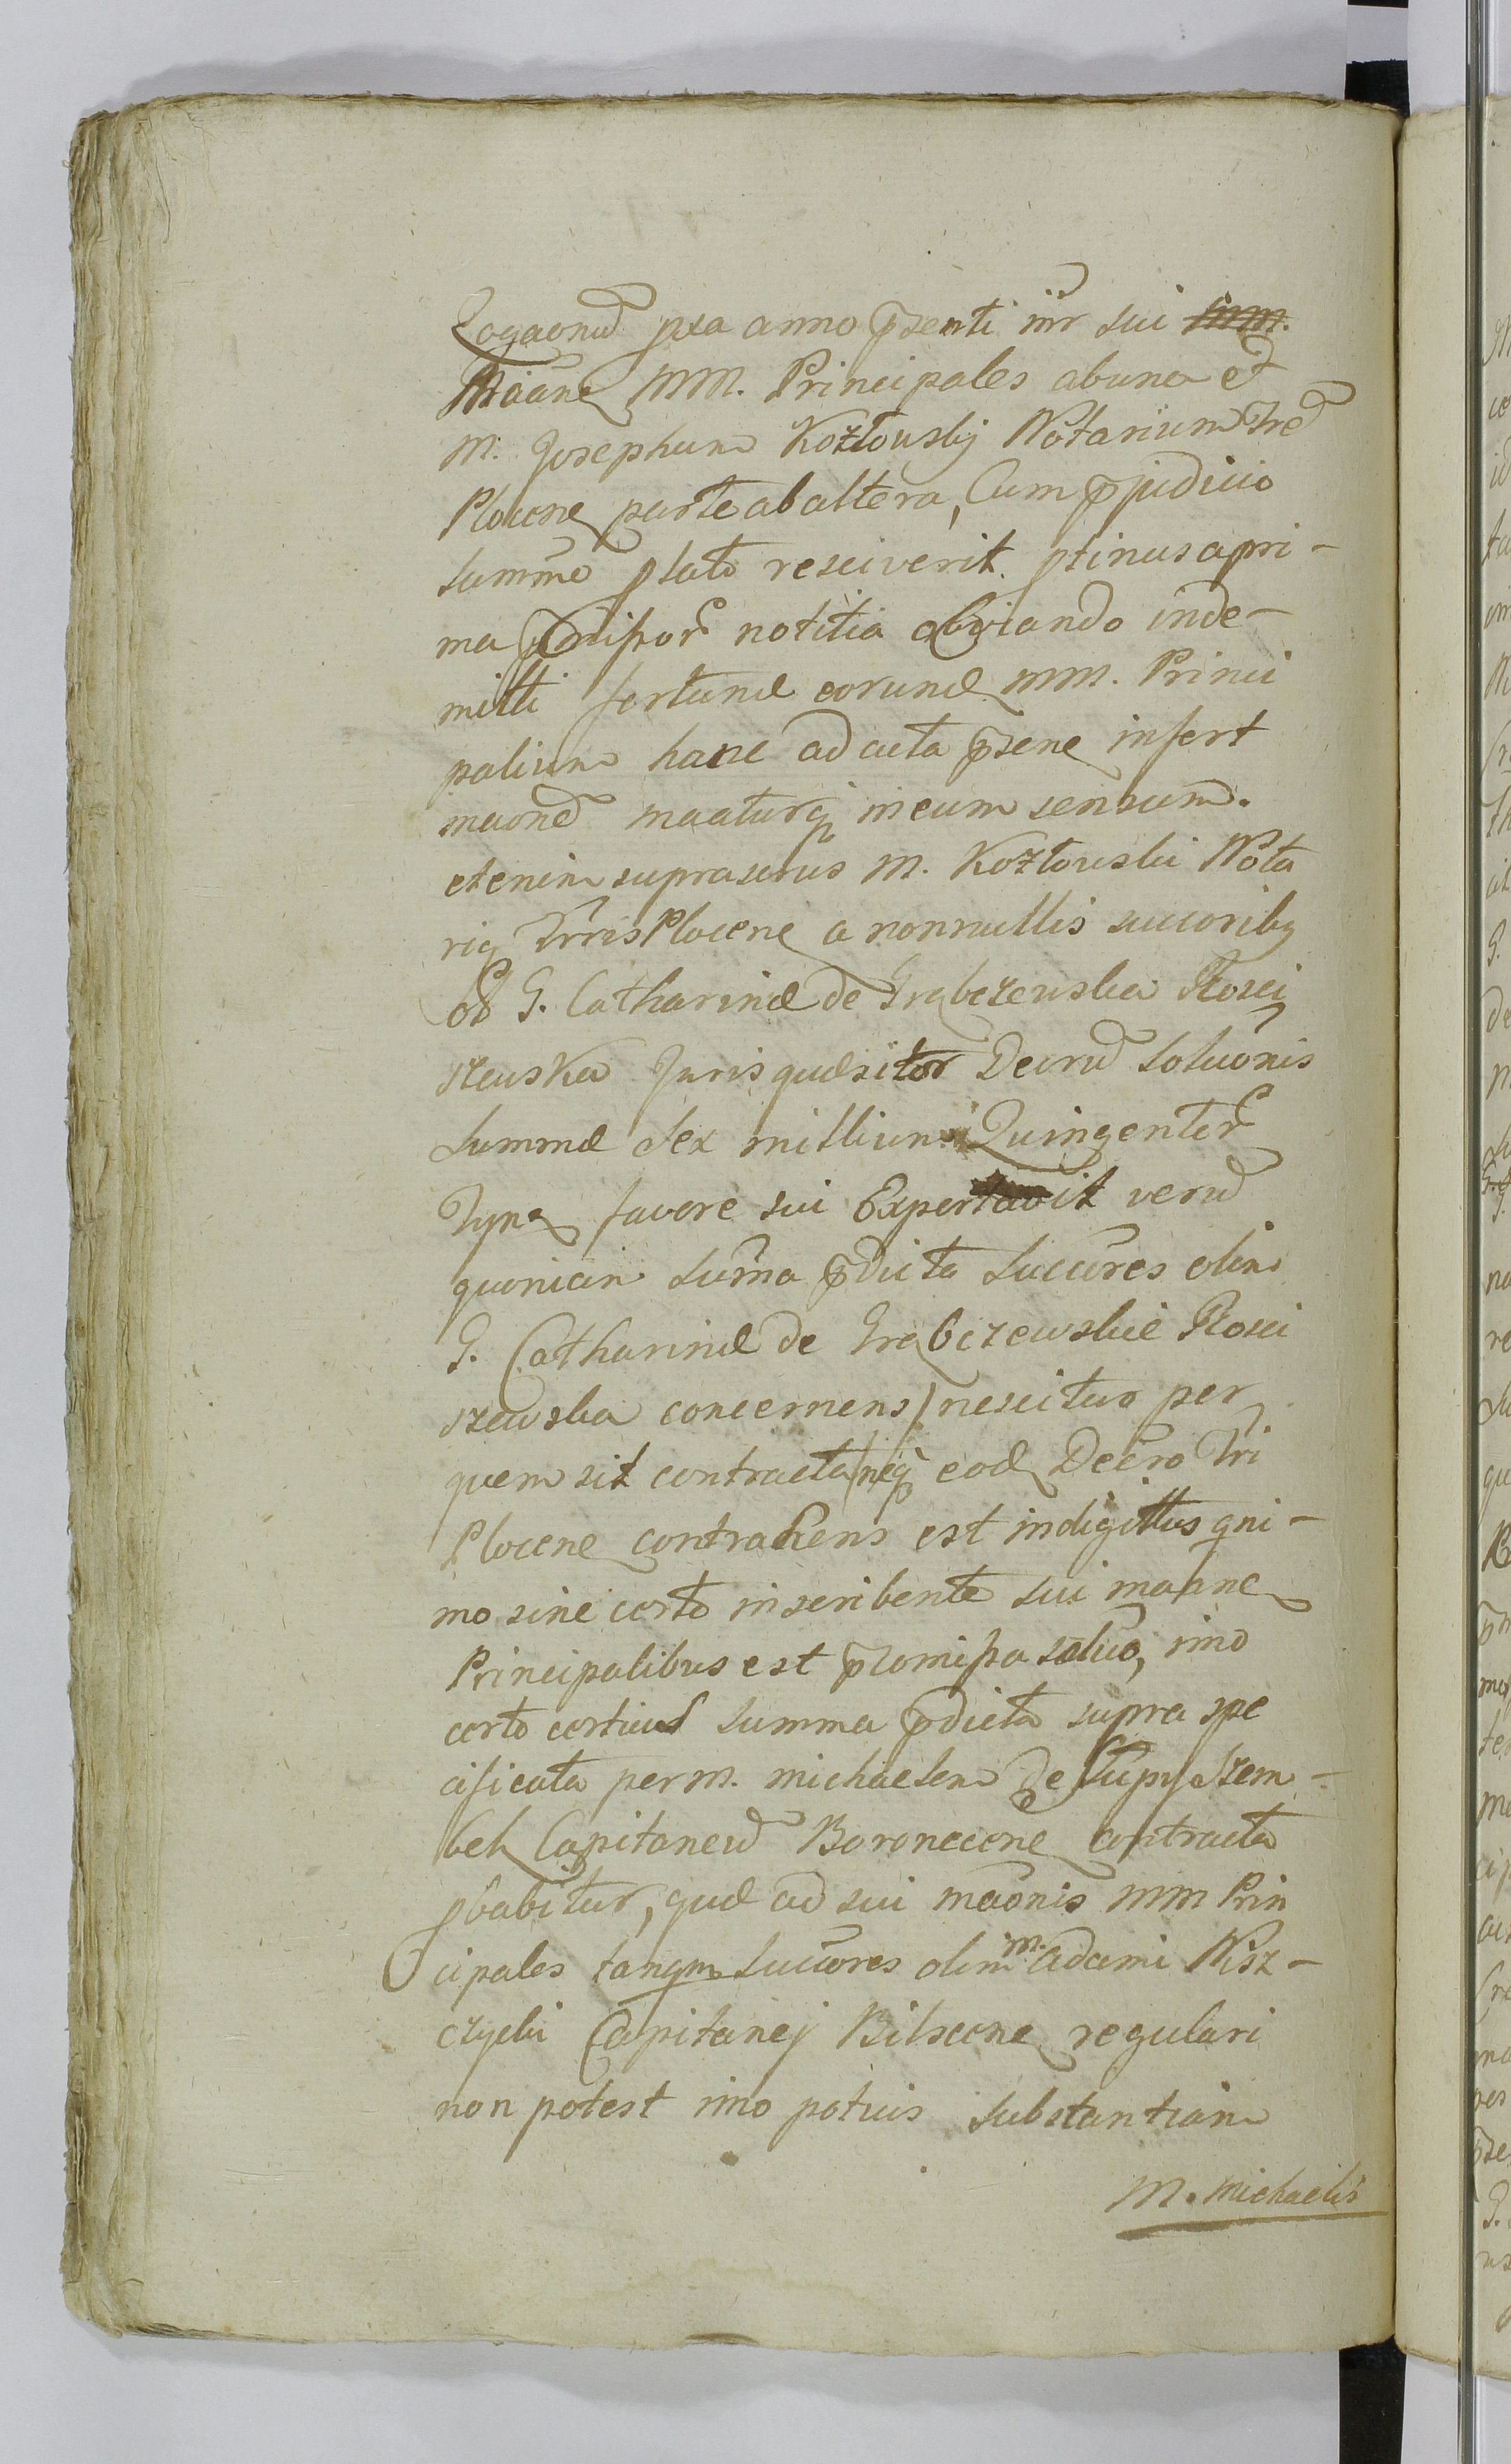 Rogaonū pxa anno p̄senti inr̄ sui
Māane MM. Principales ab una et
M. Josephum Kozłousky Notarium Tre
Plocene parte ab altera, Cum p̄judicio
summo plato resciverit, ptinus a pri-
ma notitia obviando inde-
mitti fortunæ eorund MM. Princi
palium hanc ad acta p̄sene infert
maonē maaturq̄ in eum sensum.
etenim suprascrus M. Kozłouski Nota
rig Trris Plocene a nonnullis succoriby
olī G. Catharinæ de Grąbczewska Kosci
szeuska Juris quæsitor Decrū soluonis
Summæ Sex millium Quingentor
Tynf favore sui Exportavit verū
quoniam Sum̄a p̄dicta Succōres olim
G. Catharinæ de Grąbczewskie Kosci
szewska concernens / nescitur per
quem sit contracta / neq̄ eod Decr̄o Tri
Plocene contrahens est indigittus qni-
mo sine certo inscribente sui maane
Principalibus est p̄tomissa soluo, imo
certo certius summa p̄dicta supra spe
cificata per M. Michaelem de Słupy Szem-
bek Capitaneū Boronecene contracta
pbabitur, quæ ad sui māonis MM Prin
cipales tanqm Succōres olim M. Adami Nisz-
czycki Capitanej Bilscene regulari
non potest imo potius substantiam
M. Michaelis